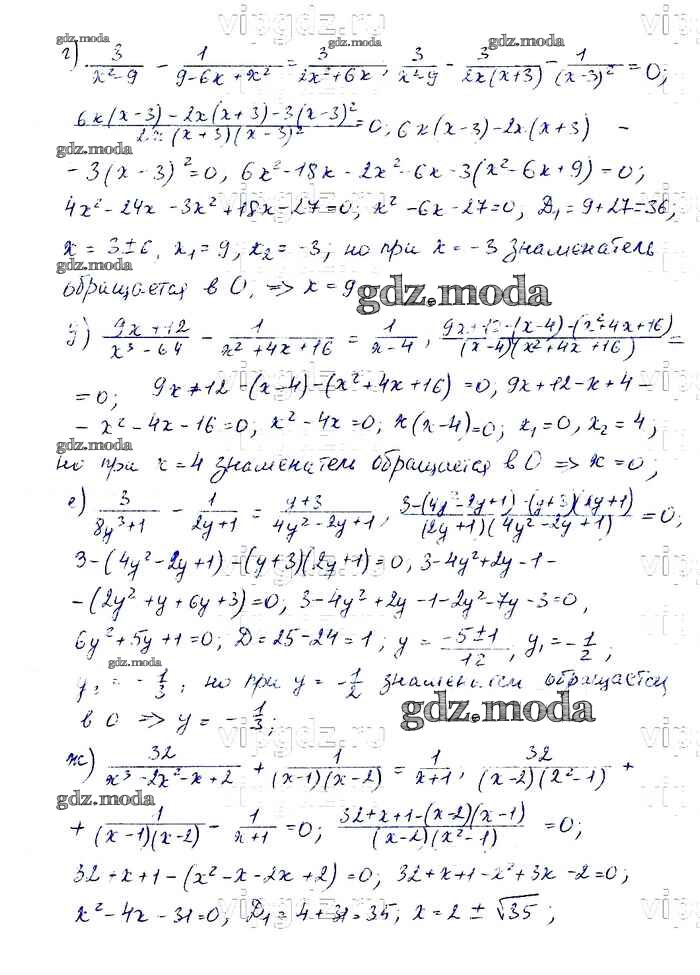 г) 3/(x²-9) - 1/(9-6x+x²) = 3/(2x²+6x), 3/(x²-9) - 3/(2x(x+3)) - 1/(x-3)² = 0;
(6x(x-3)-2x(x+3)-3(x-3)²)/(2x(x+3)(x-3)²) = 0, 6x(x-3)-2x(x+3) -
-3(x-3)²=0, 6x²-18x-2x²-6x-3(x²-6x+9)=0;
4x²-24x-3x²+18x-27=0; x²-6x-27=0, D₁=9+27=36;
x=3±6, x₁=9, x₂=-3; но при x=-3 знаменатель
обращается в 0, => x=9
д) (9x+12)/(x³-64) - 1/(x²+4x+16) = 1/(x-4), (9x+12-(x-4)-(x²+4x+16))/((x-4)(x²+4x+16)) =
=0; 9x+12-(x-4)-(x²+4x+16)=0, 9x+12-x+4-
-x²-4x-16=0; x²-4x=0; x(x-4)=0; x₁=0, x₂=4;
но при x=4 знаменатель обращается в 0 => x=0;
е) 3/(8y³+1) - 1/(2y+1) = (y+3)/(4y²-2y+1), (3-(4y²-2y+1)-(y+3)(2y+1))/((2y+1)(4y²-2y+1)) = 0;
3-(4y²-2y+1)-(y+3)(2y+1)=0, 3-4y²+2y-1-
-(2y²+y+6y+3)=0, 3-4y²+2y-1-2y²-7y-3=0,
6y²+5y+1=0; D=25-24=1; y=(-5±1)/12, y₁=-1/2;
y₂=-1/3; но при y=-1/2 знаменатель обращается
в 0 => y=-1/3;
ж) 32/(x³-2x²-x+2) + 1/((x-1)(x-2)) = 1/(x+1), 32/((x-2)(x²-1)) +
+ 1/((x-1)(x-2)) - 1/(x+1) = 0; (32+x+1-(x-2)(x-1))/((x-2)(x²-1)) = 0;
32+x+1-(x²-x-2x+2)=0; 32+x+1-x²+3x-2=0;
x²-4x-31=0; D₁=4+31=35; x=2±√35;
gdz.moda
vipgdz.ru